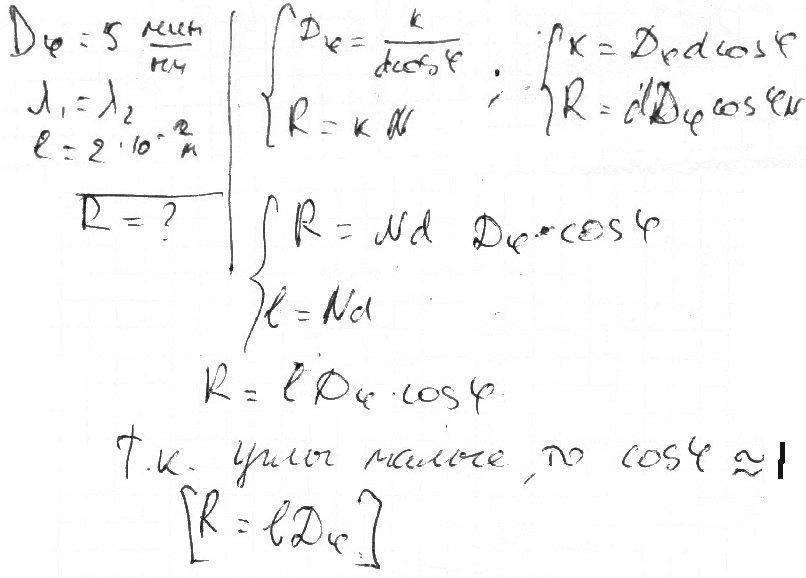 Dφ = 5 мин/нм
λ₁ = λ₂
l = 2·10⁻² м
R = ?
{ Dφ = k/(d cosφ) ; { k = Dφ d cosφ
{ R = k N { R = d Dφ cosφ N
{ R = Nd Dφ · cosφ
{ l = Nd
R = l Dφ · cosφ
т.к. углы малые, то cosφ ≈ 1
[R = l Dφ]